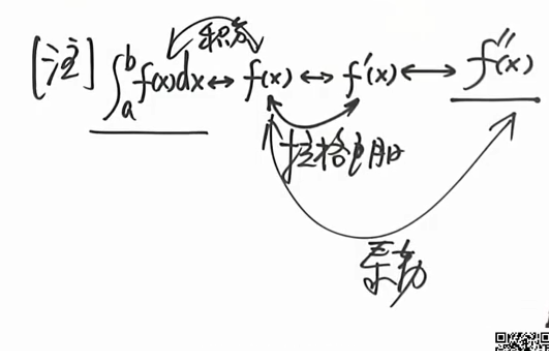 积分
[注] ∫ₐᵇ f(x)dx ↔ f(x) ↔ f'(x) ↔ f''(x)
拉格朗日
泰勒